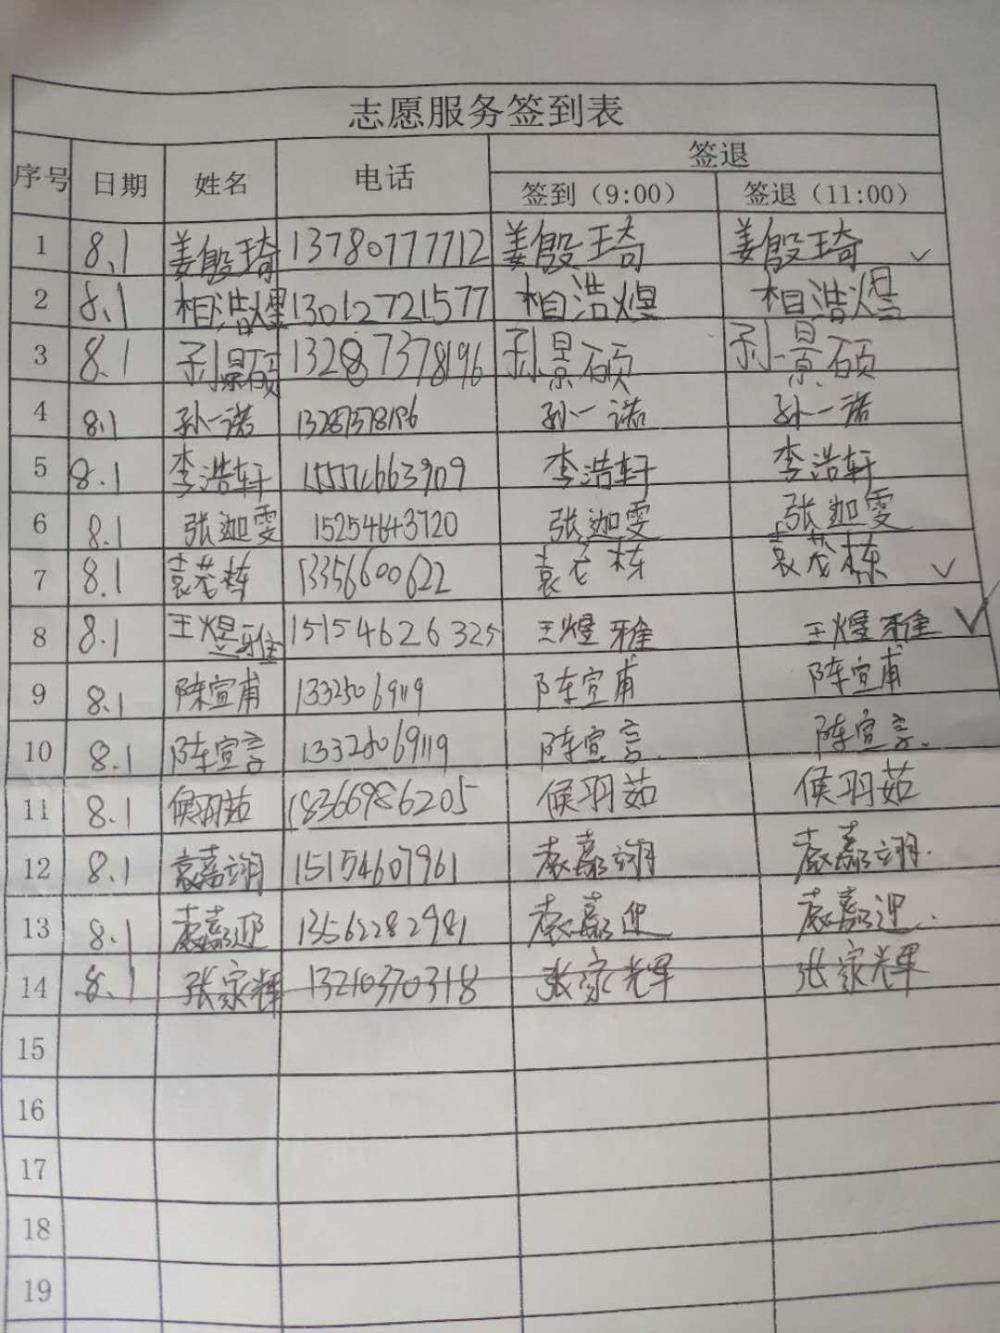 志愿服务签到表
序号 日期 姓名 电话 签退
签到（9:00） 签退（11:00）
1 8.1 姜殷琦 13780777712 姜殷琦 姜殷琦 ✓
2 8.1 相浩煜 13012721577 相浩煜 相浩煜
3 8.1 刘景硕 13287378196 刘景硕 刘景硕
4 8.1 孙一诺 孙一诺 孙一诺
5 8.1 李浩轩 李浩轩 李浩轩
6 8.1 张迦雯 15254643720 张迦雯 张迦雯
7 8.1 袁茂栋 13356600622 袁茂栋 袁茂栋 ✓
8 8.1 王煜雅 15154626325 王煜雅 王煜雅 ✓
9 8.1 陈宣甫 陈宣甫 陈宣甫
10 8.1 陈宣言 13325069119 陈宣言. 陈宣言.
11 8.1 侯羽茹 18366986205 侯羽茹 侯羽茹
12 8.1 袁嘉翊 15154607961 袁嘉翊 袁嘉翊.
13 8.1 袁嘉迎 13562282981 袁嘉迎 袁嘉迎.
14 8.1 张家辉 13210370318 张家辉 张家辉
15
16
17
18
19